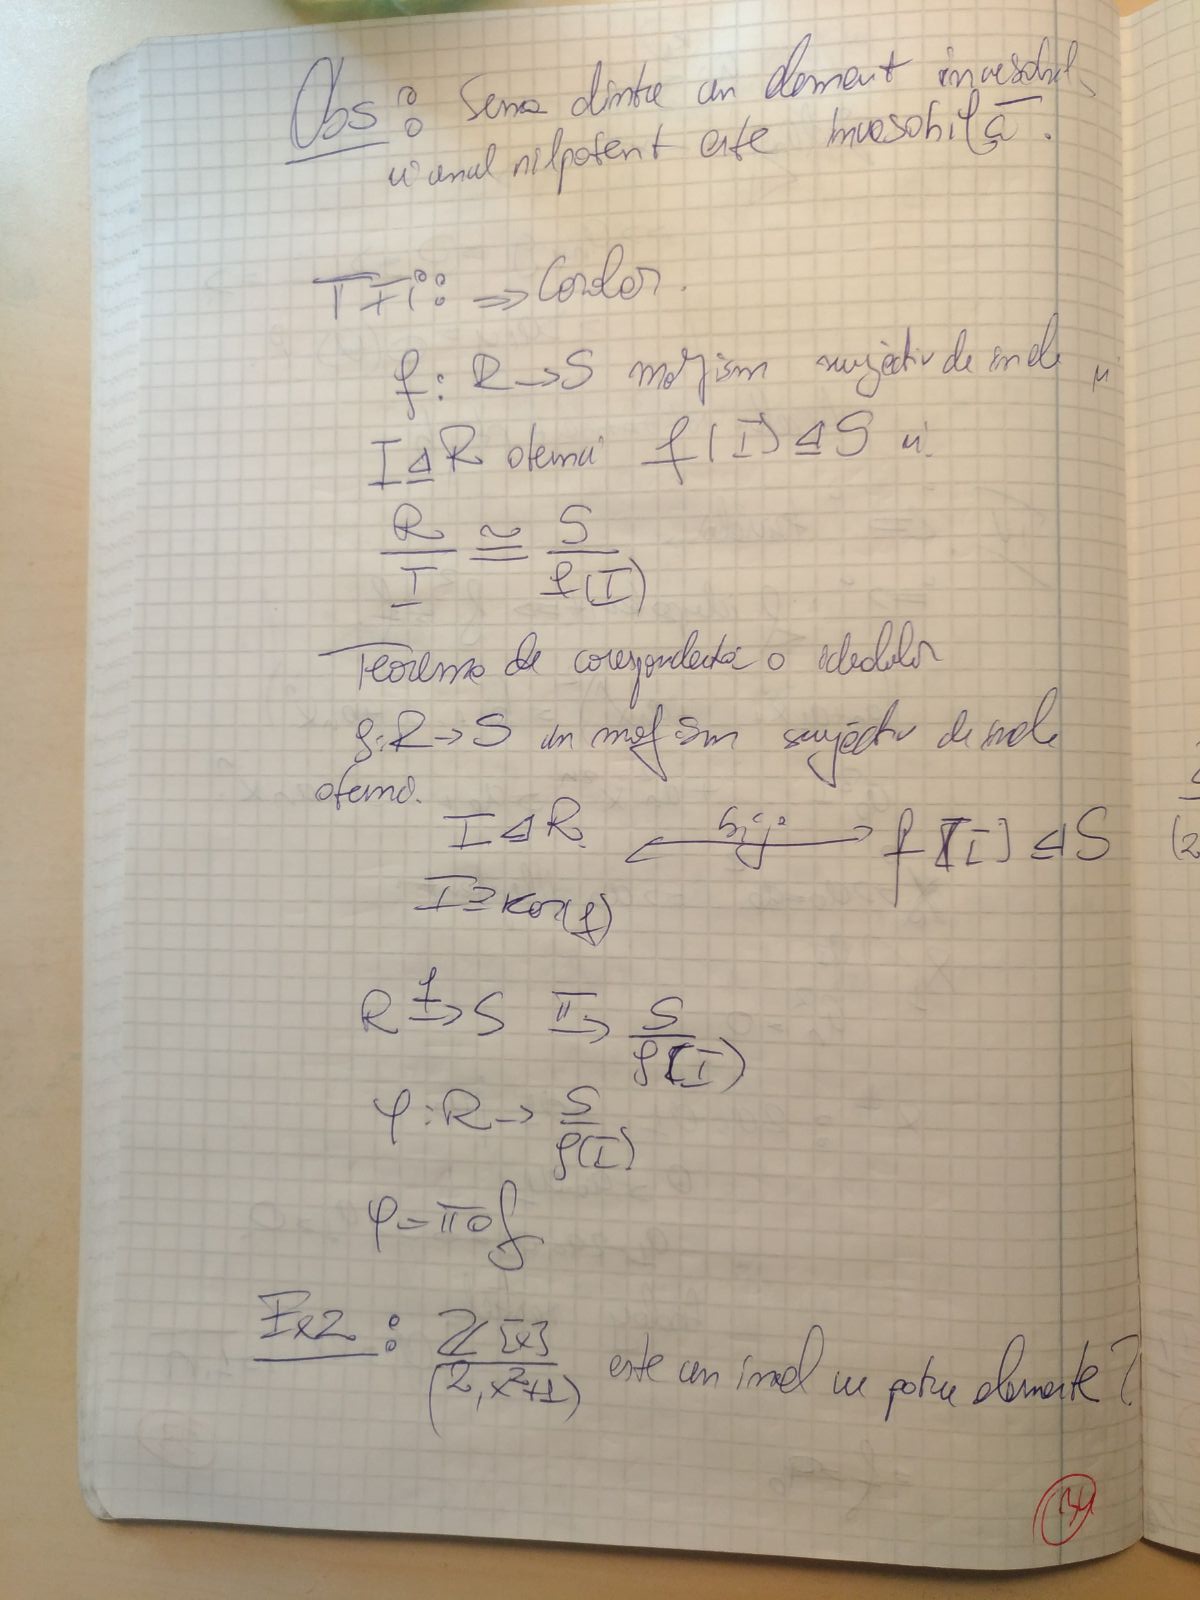 Obs: Suma dintre un element inversabil
și unul nilpotent este inversabilă.
TFI: => Corolar.
f: R → S morfism surjectiv de inele și
I ⊴ R atunci f(I) ⊴ S și
R/I ≅ S/f(I)
Teorema de corespondență a idealelor
f: R → S un morfism surjectiv de inele
atunci.
I ⊴ R ⟷ bij. f(I) ⊴ S
I ⊇ Ker(f)
R →f S →π S/f(I)
φ: R → S/f(I)
φ = π∘f
Ex2: ℤ[x]/(2, x²+1) este un inel cu patru elemente?